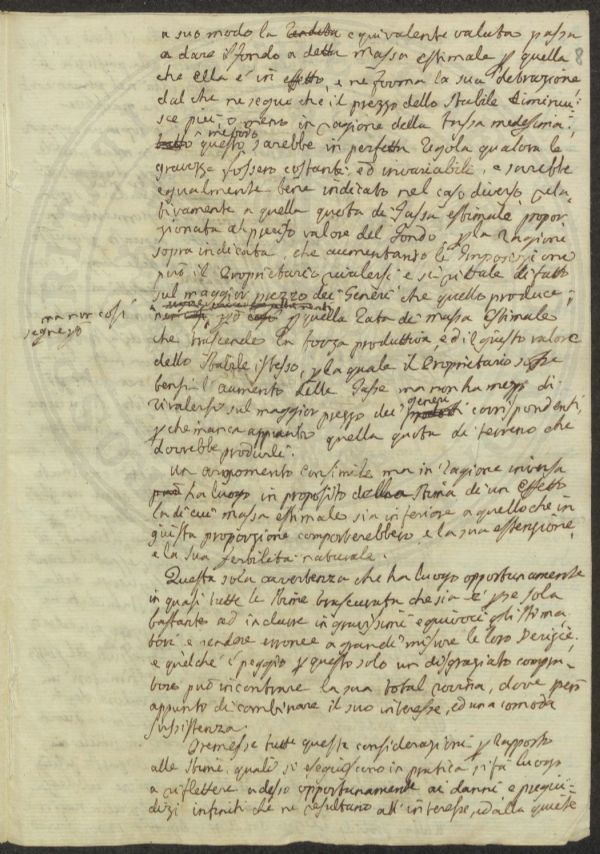 8
a suo modo la rendita equivalente valuta passa
a dare il fondo a detta massa estimale p quella
che ella è in effetto, e ne forma la sua detrazione
dal che ne segue che il prezzo dello stabile diminui-
sce più, o meno in ragione della tassa medesima:
tutto questo metodo sarebbe in perfetta regola qualora le
gravezze fossero costanti, ed invariabili, e sarebbe
egualmente bene indicato nel caso diverso rela-
tivamente a quella quota di tassa estimale propor-
zionata al giusto valore del fondo, p la ragione
sopra indicata, che aumentando le Imposizioni
può il Proprietario rivalersi e si rivale di fatto
sul maggior prezzo dei Generi che quello produce
ma non così
segue p
p quella rata di massa estimale
che trascende la forza produttiva, ed il giusto valore
dello stabile istesso, p la quale il Proprietario soffre
bensì l'aumento delle Tasse ma non ha mezzi di
rivalersi sul maggior prezzo dei generi corrispondenti
p che manca appunto quella quota di terreno che
dovrebbe produrli.
Un argomento consimile ma in ragione inversa
ha luogo in proposito della stima di un effetto
la di cui massa estimale sia inferiore a quello che in
giusta proporzione comporterebbero, e la sua estensione,
e la sua fertilità naturale.
Questa sola avvertenza che ha luogo opportunamente
in quasi tutte le stime trascurata che sia è p se sola
bastante ad indurre in gravissimi equivoci gli stima-
tori e rendere erronee a grandi misure le loro Perizie,
e quel che è peggio p questo solo un disgraziato compra-
tore può incontrare la sua total rovina, dove però
appunto di combinare il suo interesse, ed una comoda
sussistenza.
Premesse tutte queste considerazioni p rapporto
alle stime, quali si eseguiscono in pratica si fa luogo
a riflettere adesso opportunamente ai danni e pregiu-
dizi infiniti che ne resultano all'interesse, ed alla quiete